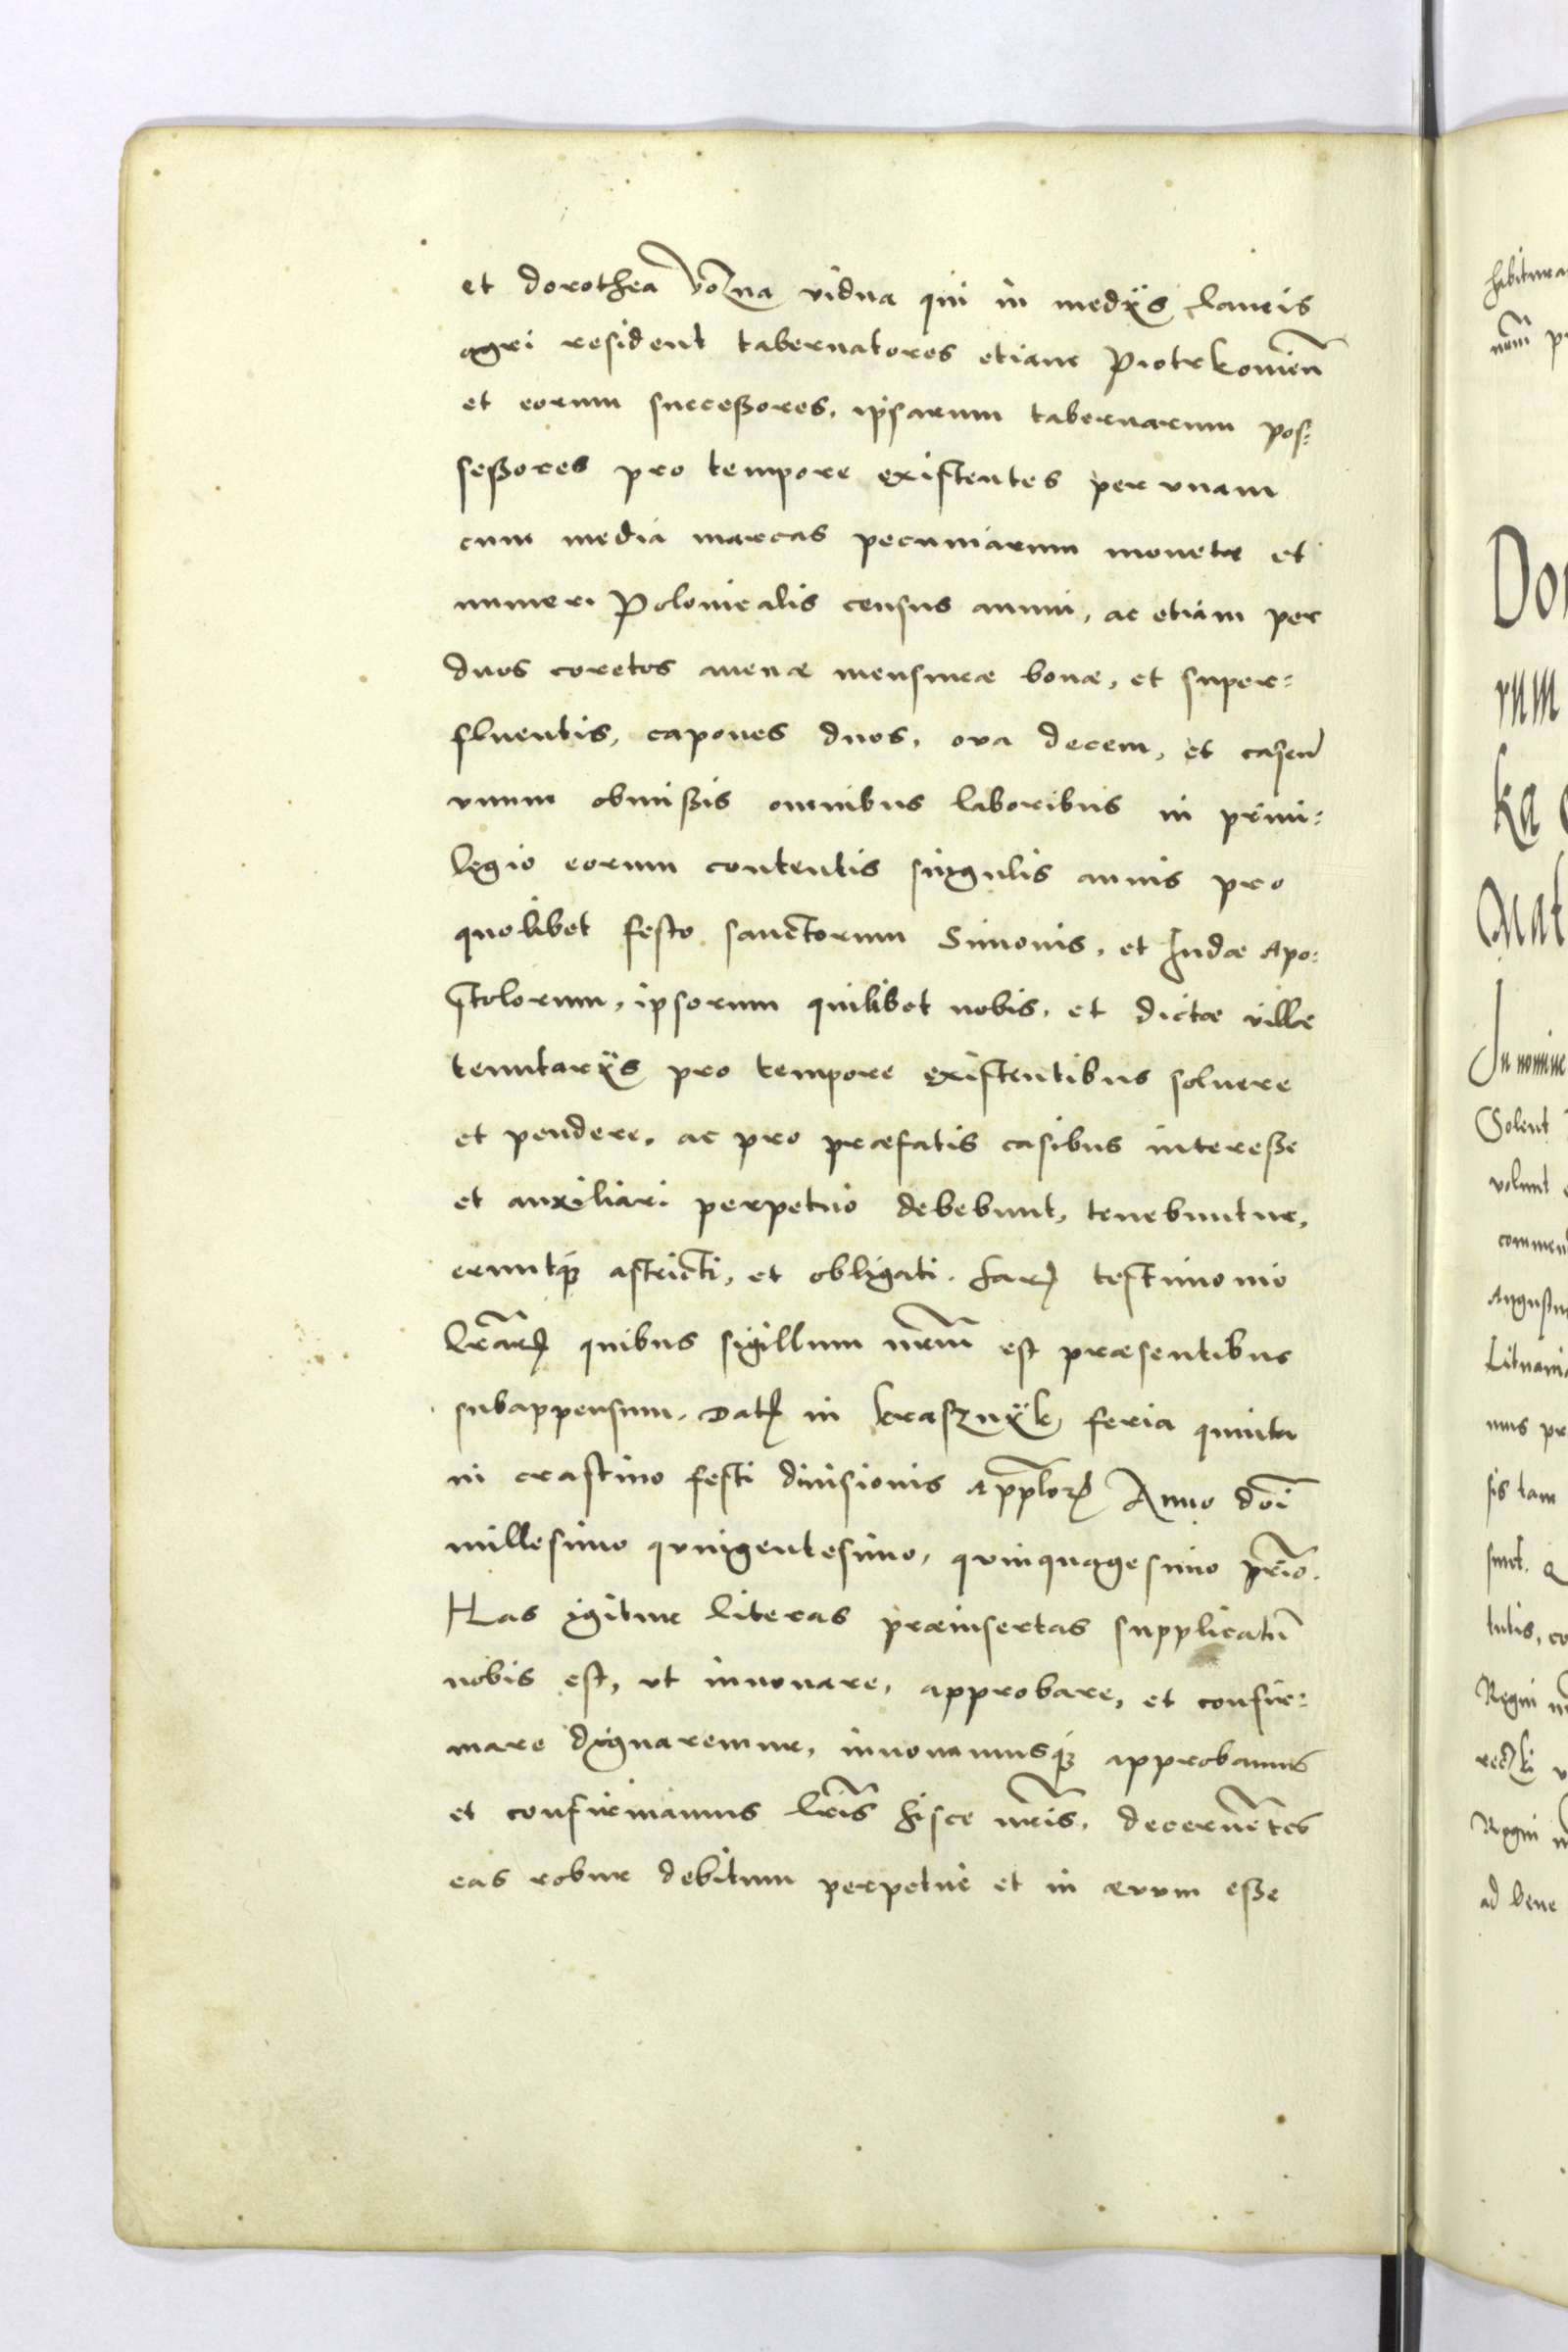 et dorothea Vo᷍zna vidua qui in medÿs laneis
agri resident tabernatores etiam Piotrkowień
et eorum succeßores, ipsarum tabernarum pos:
seßores pro tempore existentes per vnam
cum media marcas pecuniarum monetæ et
numeri Polonicalis census annui, ac etiam per
duos coretos auenæ mensuræ bonæ, et super:
fluentis, capones duos, oua decem, et caseū
vnum obmißis omnibus laboribus in priui:
legio eorum contentis singulis annis pro
quolibet festo sanctorum Simonis, et Iudæ Apo:
stolorum, ipsorum quilibet nobis, et dictæ villæ
tenutarÿs pro tempore existentibus soluere
et pendere, ac pro præfatis casibus intereße
et auxiliari perpetuo debebunt, tenebuntur,
eruntqꝫ astricti, et obligati. harꝝ testimonio
lr̄arꝝ quibus sigillum nr̄m est præsentibus
subappensum. Datꝭ in krasznÿk feria quinta
in crastino festi diuisionis Appl̄orꝝ Anno dn̄i
millesimo qvingentesimo, qvinquagesimo pr̄io.
Has igitur literas præinsertas supplicatū
nobis est, vt innouare, approbare, et confir:
mare dignaremur, innouamusqꝫ approbamus
et confirmamus lr̄is hisce nr̄is, decernētes
eas robur debitum perpetue et in ævum eße
habitura
nr̄m
Do
rum
ka
Mat
In nomine
Solent
volunt
commen
Augustu
Lituani
mus pr
sis tam
smet.
tutis, co
Regni
reczki
Regni
ad bene